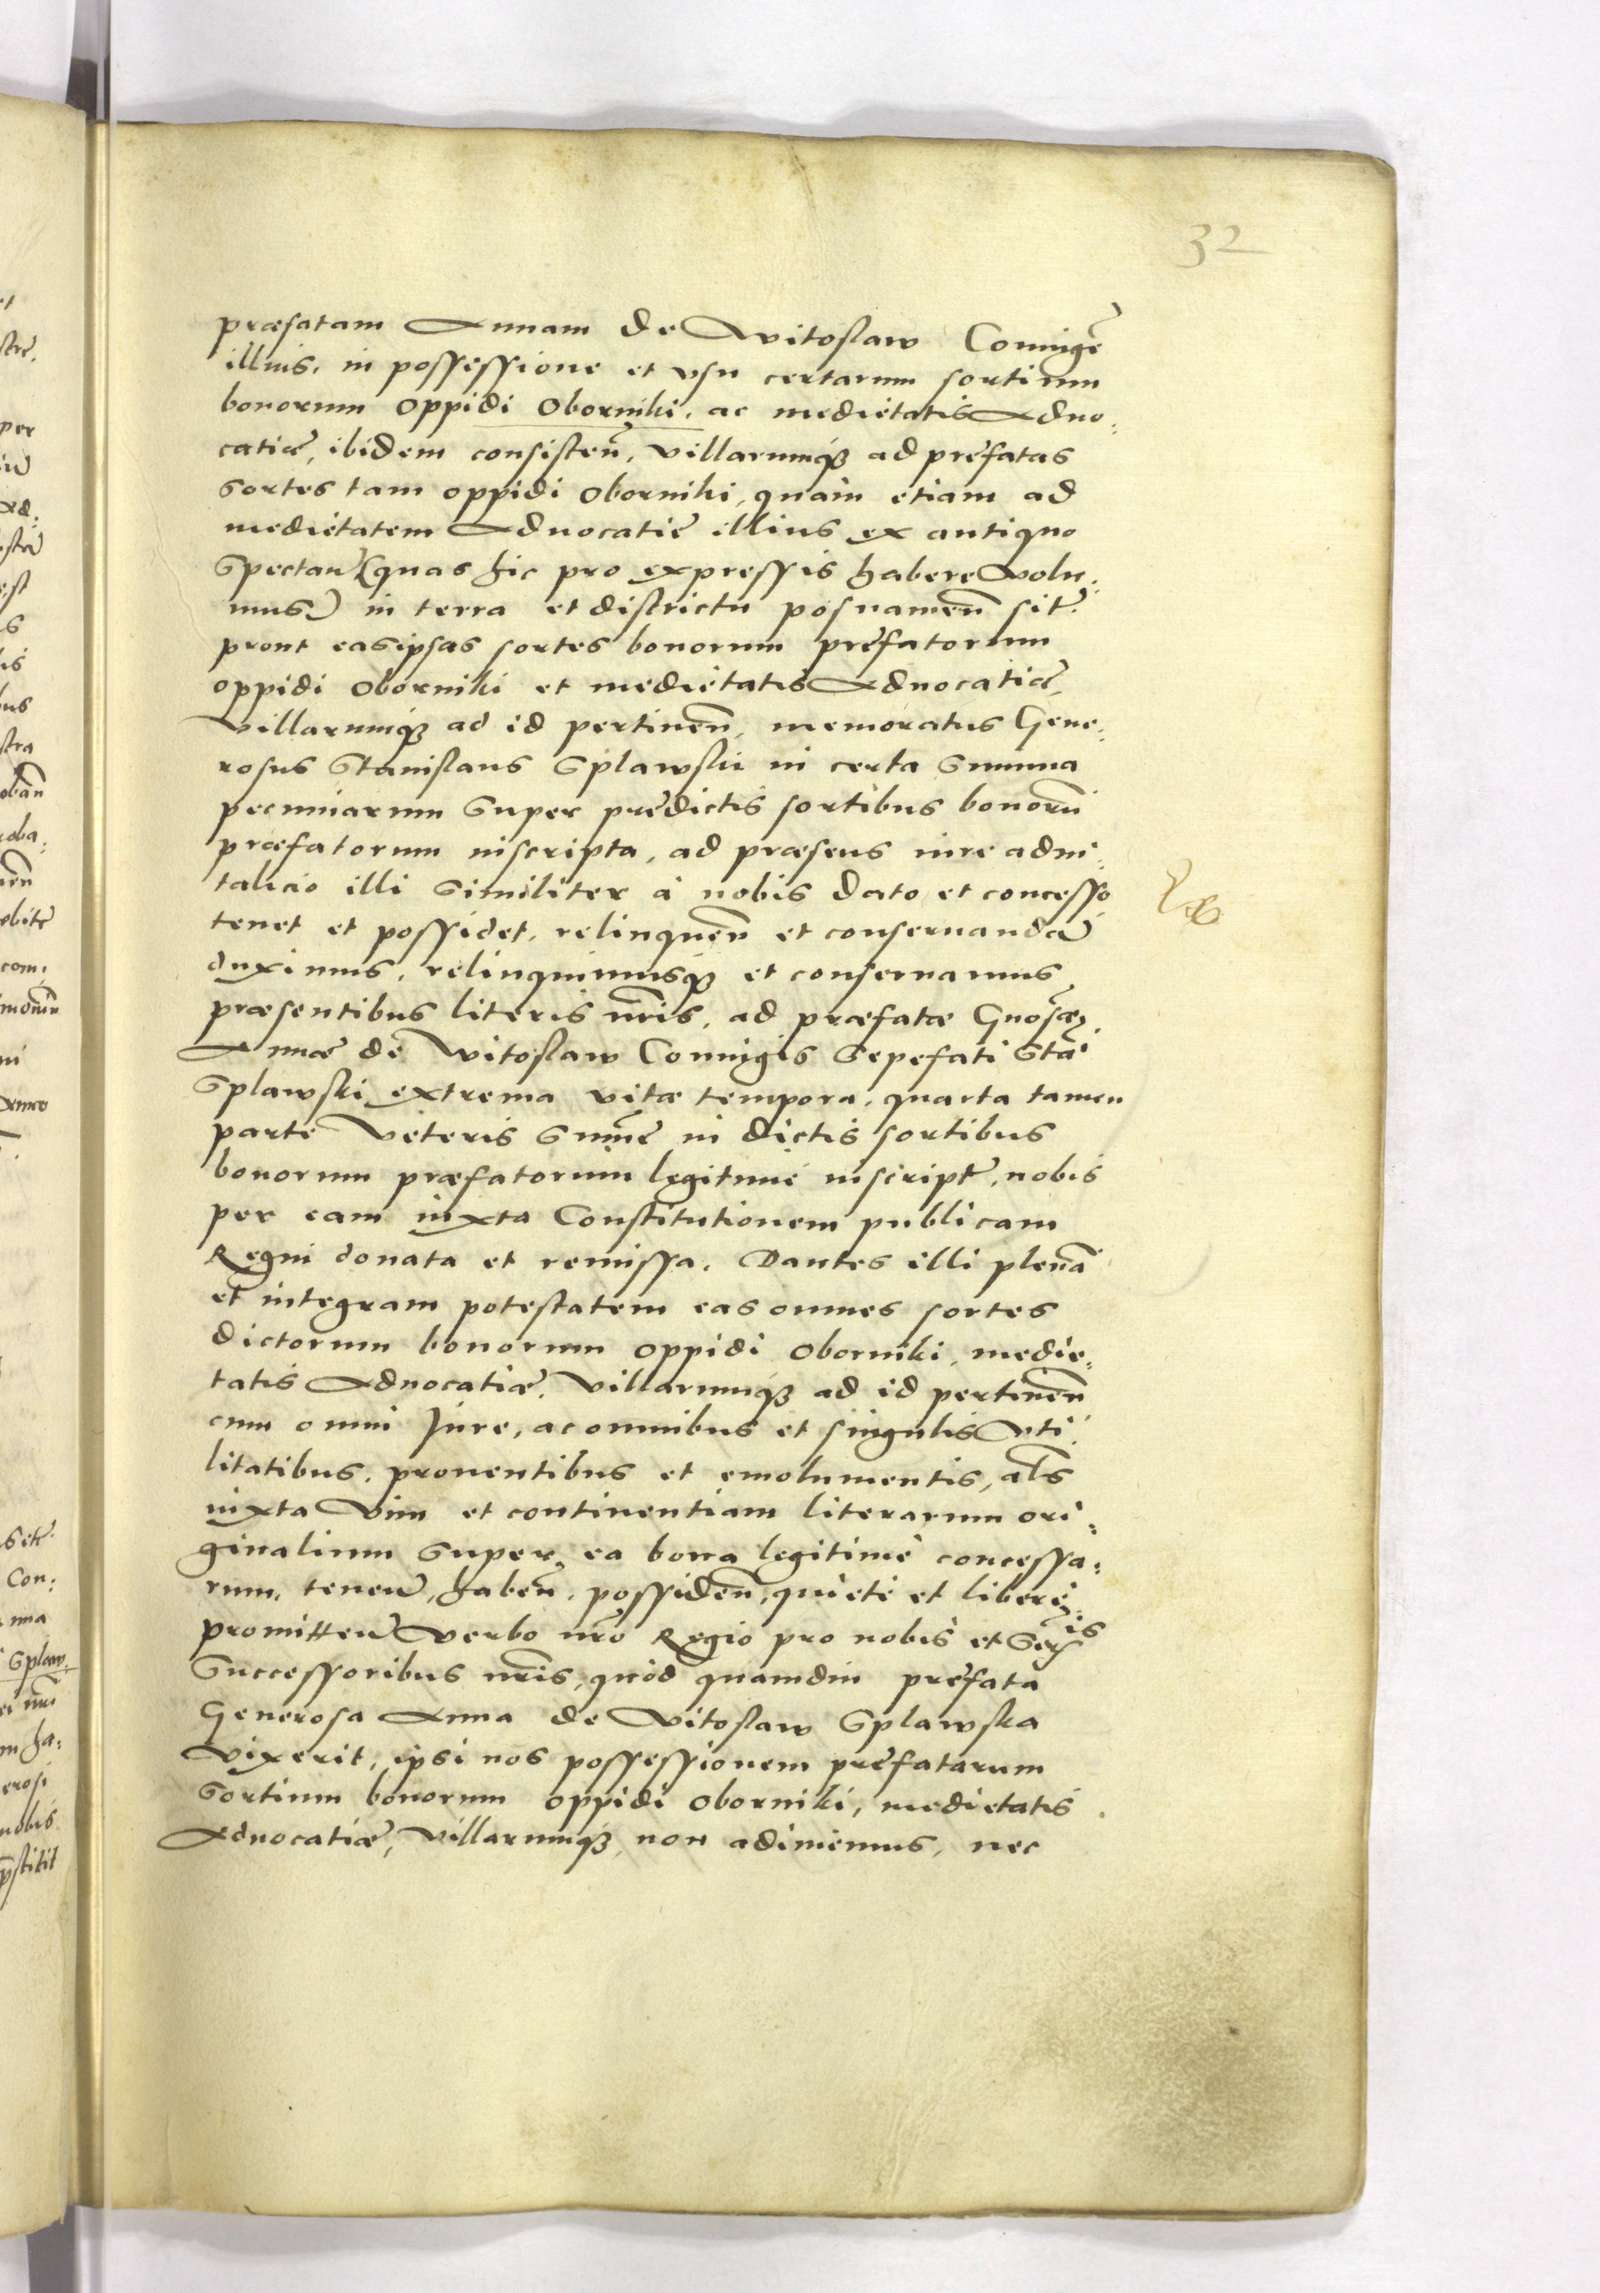 32
præfatam Annam de Witoslaw Coniugē
illius, in possessione et vsu certarum sortium
bonorum oppidi Oborniki, ac medietatis Aduo:
catiæ, ibidem consisteñ, villarumqȝ ad præfatas
sortes tam oppidi Oborniki, quàm etiam ad
medietatem Aduocatiæ illius ex antiquo
spectañ (quas hic pro expressis habere volu:
mus) in terra et districtu posnanieñ sit̃
prout eas ipsas sortes bonorum præfatorum
oppidi Oborniki et medietatis Aduocatiæ,
villarumqȝ ad id pertineñ, memoratus Gene:
rosus Stanislaus Splawski in certa summa
pecuniarum super prædictis sortibus bonorũ
præfatorum inscripta, ad præsens iure adui:
talicio illi similiter à nobis dato et concesso
tenet et possidet, relinqueñ et conseruandā
duximus, relinquimusqȝ et conseruamus
præsentibus literis nr̃is, ad præfatæ Gnosæ
Annæ de Witoslaw Coniugis sepefati Stā
Splawski extrema vitæ tempora, quarta tamen
parte veteris sum̃æ in dictis sortibus
bonorum præfatorum legitimè inscriptæ, nobis
per eam iuxta Constitutionem publicam
Regni donata et remissa. Dantes illi plenā
et integram potestatem eas omnes sortes
dictorum bonorum oppidi Oborniki, medie:
tatis Aduocatiæ, villarumqȝ ad id pertineñ
cum omni Jure, ac omnibus et singulis vti:
litatibus, prouentibus et emolumentis, al̃s
iuxta vim et continentiam literarum ori:
ginalium super ea bona legitimè concessa:
rum, teneñ, habeñ, possideñ, quietè et liberè,
promitteñ verbo nr̃o Regio pro nobis et Serīs
Successoribus nr̃is, quòd quamdiu præfata
Generosa Anna de Witoslaw Splawska
vixerit, ipsi nos possessionem præfatarum
sortium bonorum oppidi Oborniki, medietatis
Aduocatiæ, villarumqȝ non adimemus, nec